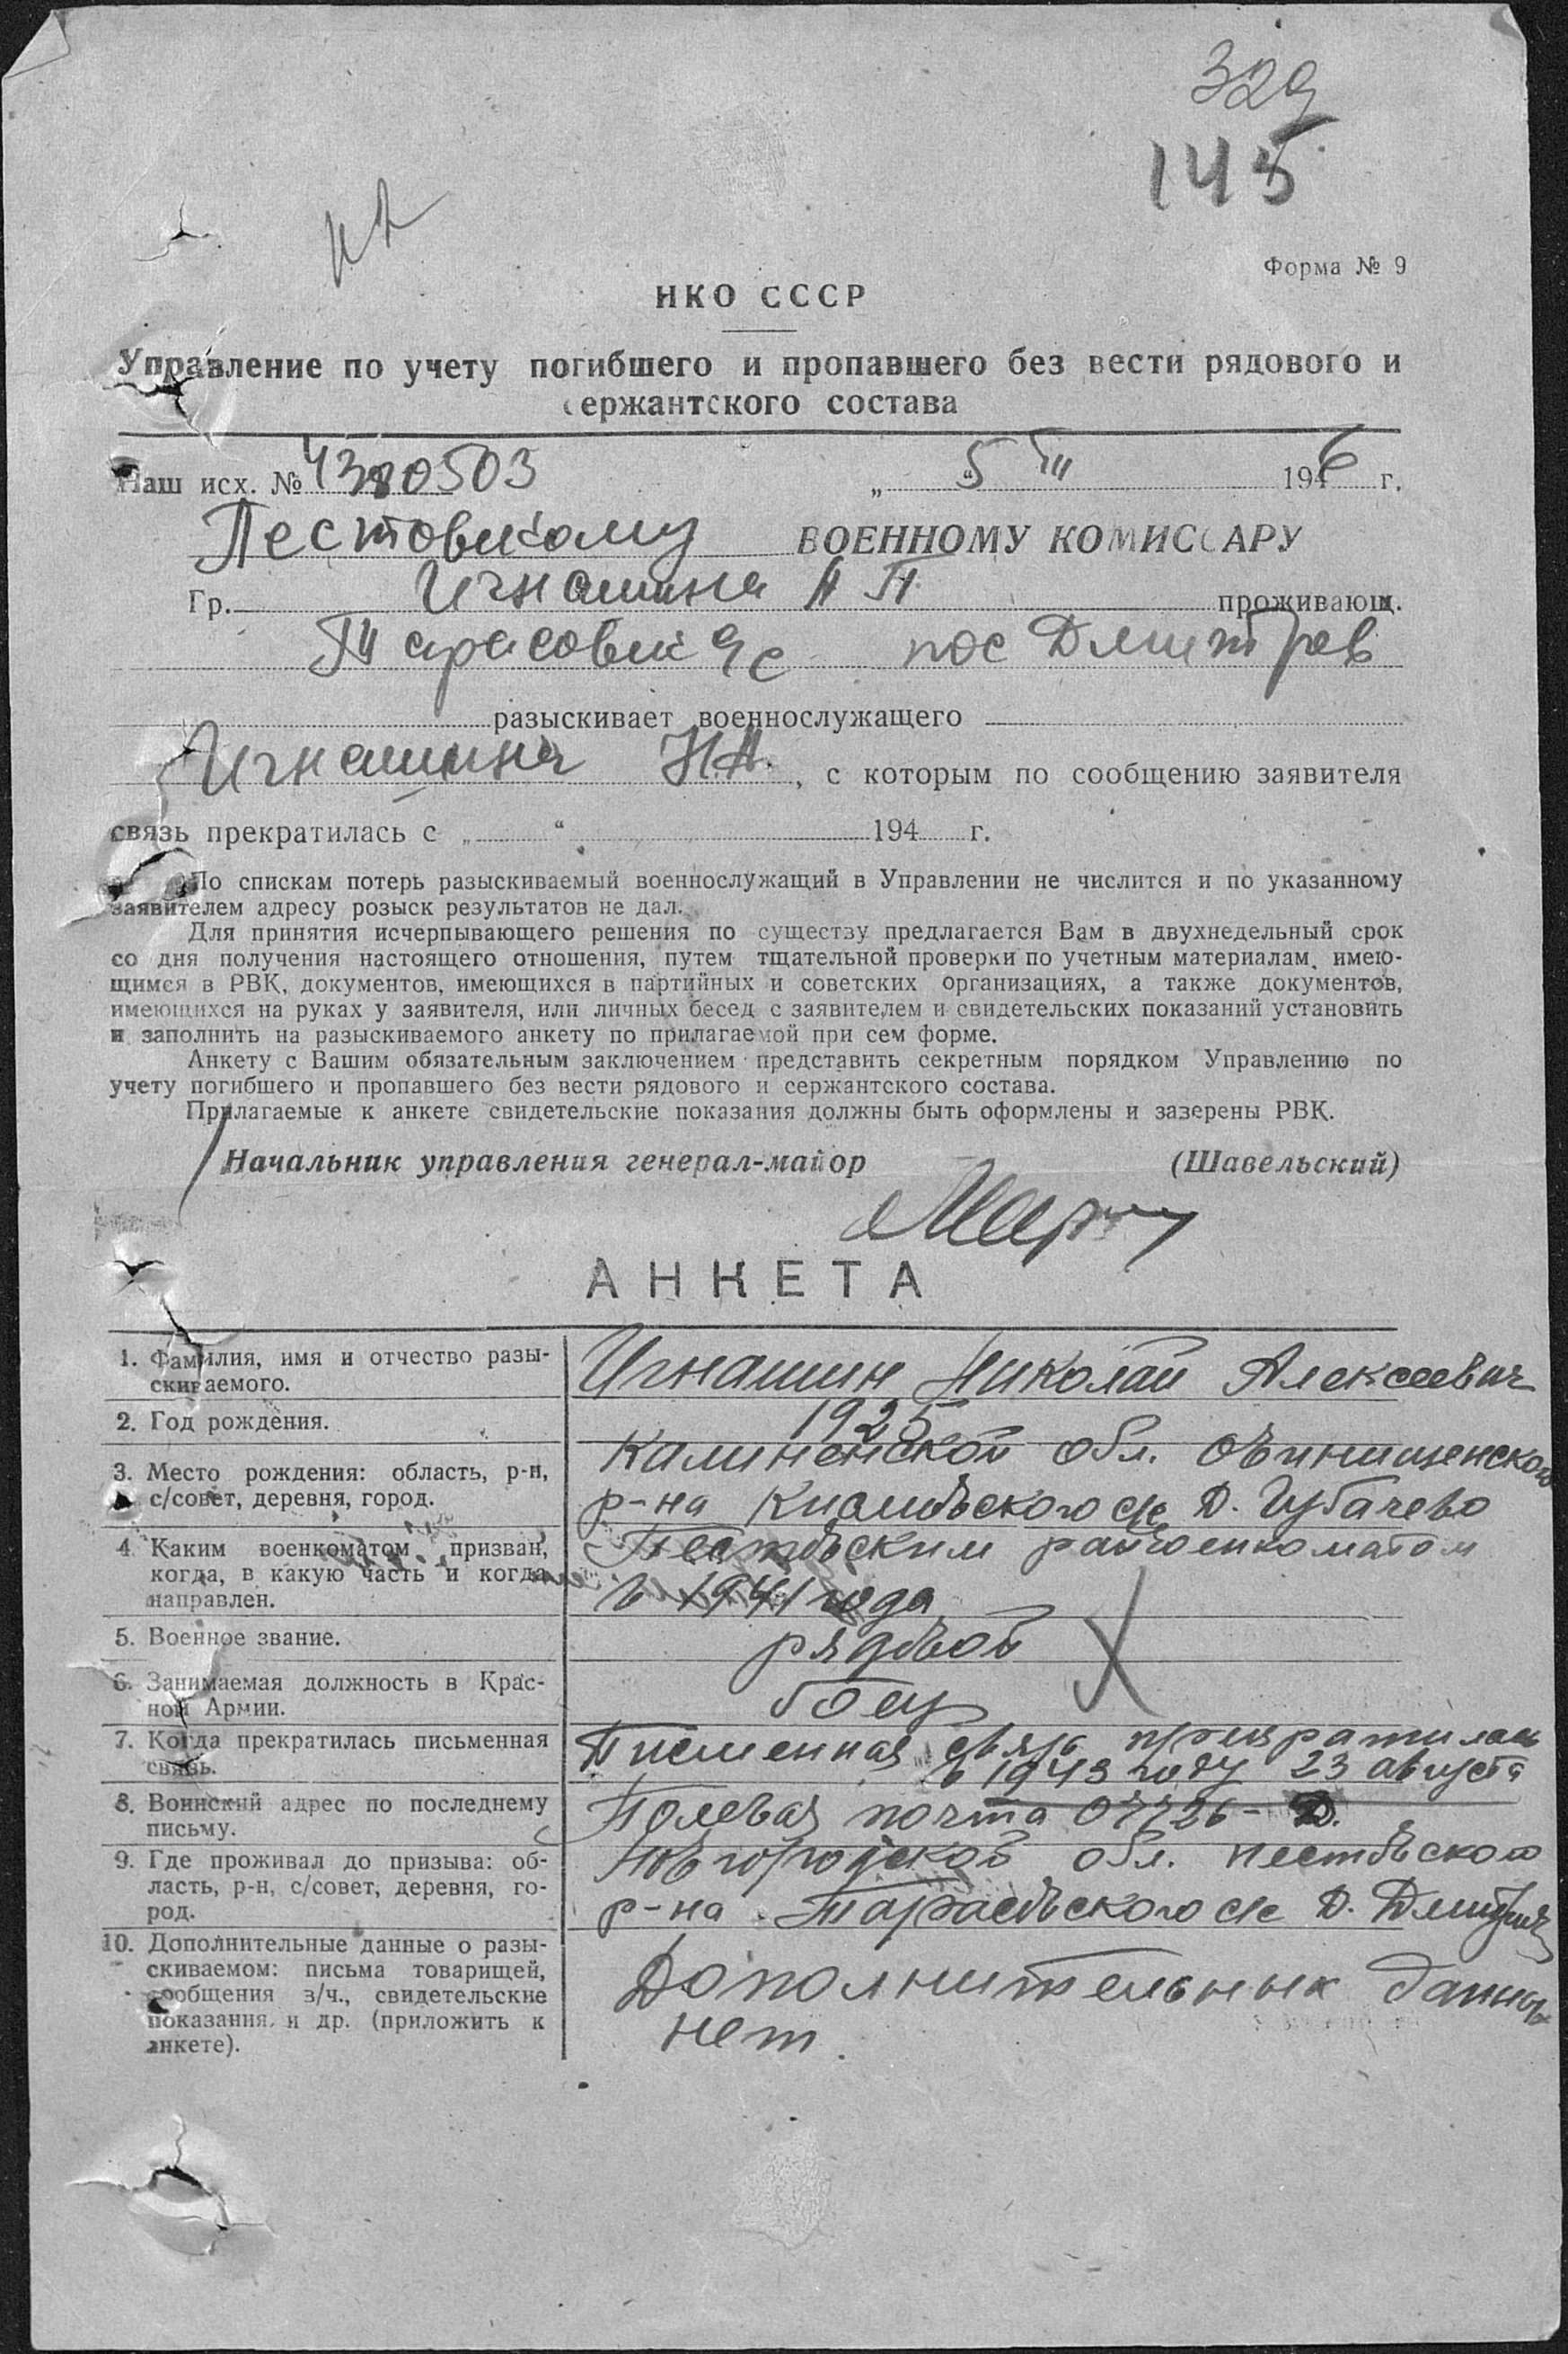 329
145
Форма № 9
НКО СССР
Управление по учету погибшего и пропавшего без вести рядового и
сержантского состава
Наш исх. № „ 5 III 1946 г.
Пестовскому ВОЕННОМУ КОМИССАРУ
Гр. Игнашина А П проживающ.
Тарасовск с/с пос Дмитров
разыскивает военнослужащего
Игнашина Н.А. , с которым по сообщению заявителя
связь прекратилась с „ “ 194 г.
По спискам потерь разыскиваемый военнослужащий в Управлении не числится и по указанному
заявителем адресу розыск результатов не дал.
Для принятия исчерпывающего решения по существу предлагается Вам в двухнедельный срок
со дня получения настоящего отношения, путем тщательной проверки по учетным материалам, имею-
щимся в РВК, документов, имеющихся в партийных и советских организациях, а также документов,
имеющихся на руках у заявителя, или личных бесед с заявителем и свидетельских показаний установить
и заполнить на разыскиваемого анкету по прилагаемой при сем форме.
Анкету с Вашим обязательным заключением представить секретным порядком Управлению по
учету погибшего и пропавшего без вести рядового и сержантского состава.
Прилагаемые к анкете свидетельские показания должны быть оформлены и заверены РВК.
Начальник управления генерал-майор (Шавельский)
АНКЕТА
1. Фамилия, имя и отчество разы-
скиваемого.
Игнашин Николай Алексеевич
2. Год рождения.
1925
3. Место рождения: область, р-н,
с/совет, деревня, город.
Калиненской обл. Овинищенского
р-на с/с Д. Губачево
4 Каким военкоматом призван,
когда, в какую часть и когда
направлен.
Пестовским райвоенкоматом
в 1941 года
5. Военное звание.
рядовой
6. Занимаемая должность в Крас-
ной Армии.
боец
7. Когда прекратилась письменная
связь.
Писменная связь прекратилась
в 1943 году 23 августа
8. Воинский адрес по последнему
письму.
Полевая почта 07726-Д.
9. Где проживал до призыва: об-
ласть, р-н, с/совет, деревня, го-
род.
Новгородской обл. пестовского
р-на Тарасовского с/с Д.
10. Дополнительные данные о разы-
скиваемом: письма товарищей,
сообщения в/ч., свидетельские
показания и др. (приложить к
анкете).
Дополнительных данных
нет.